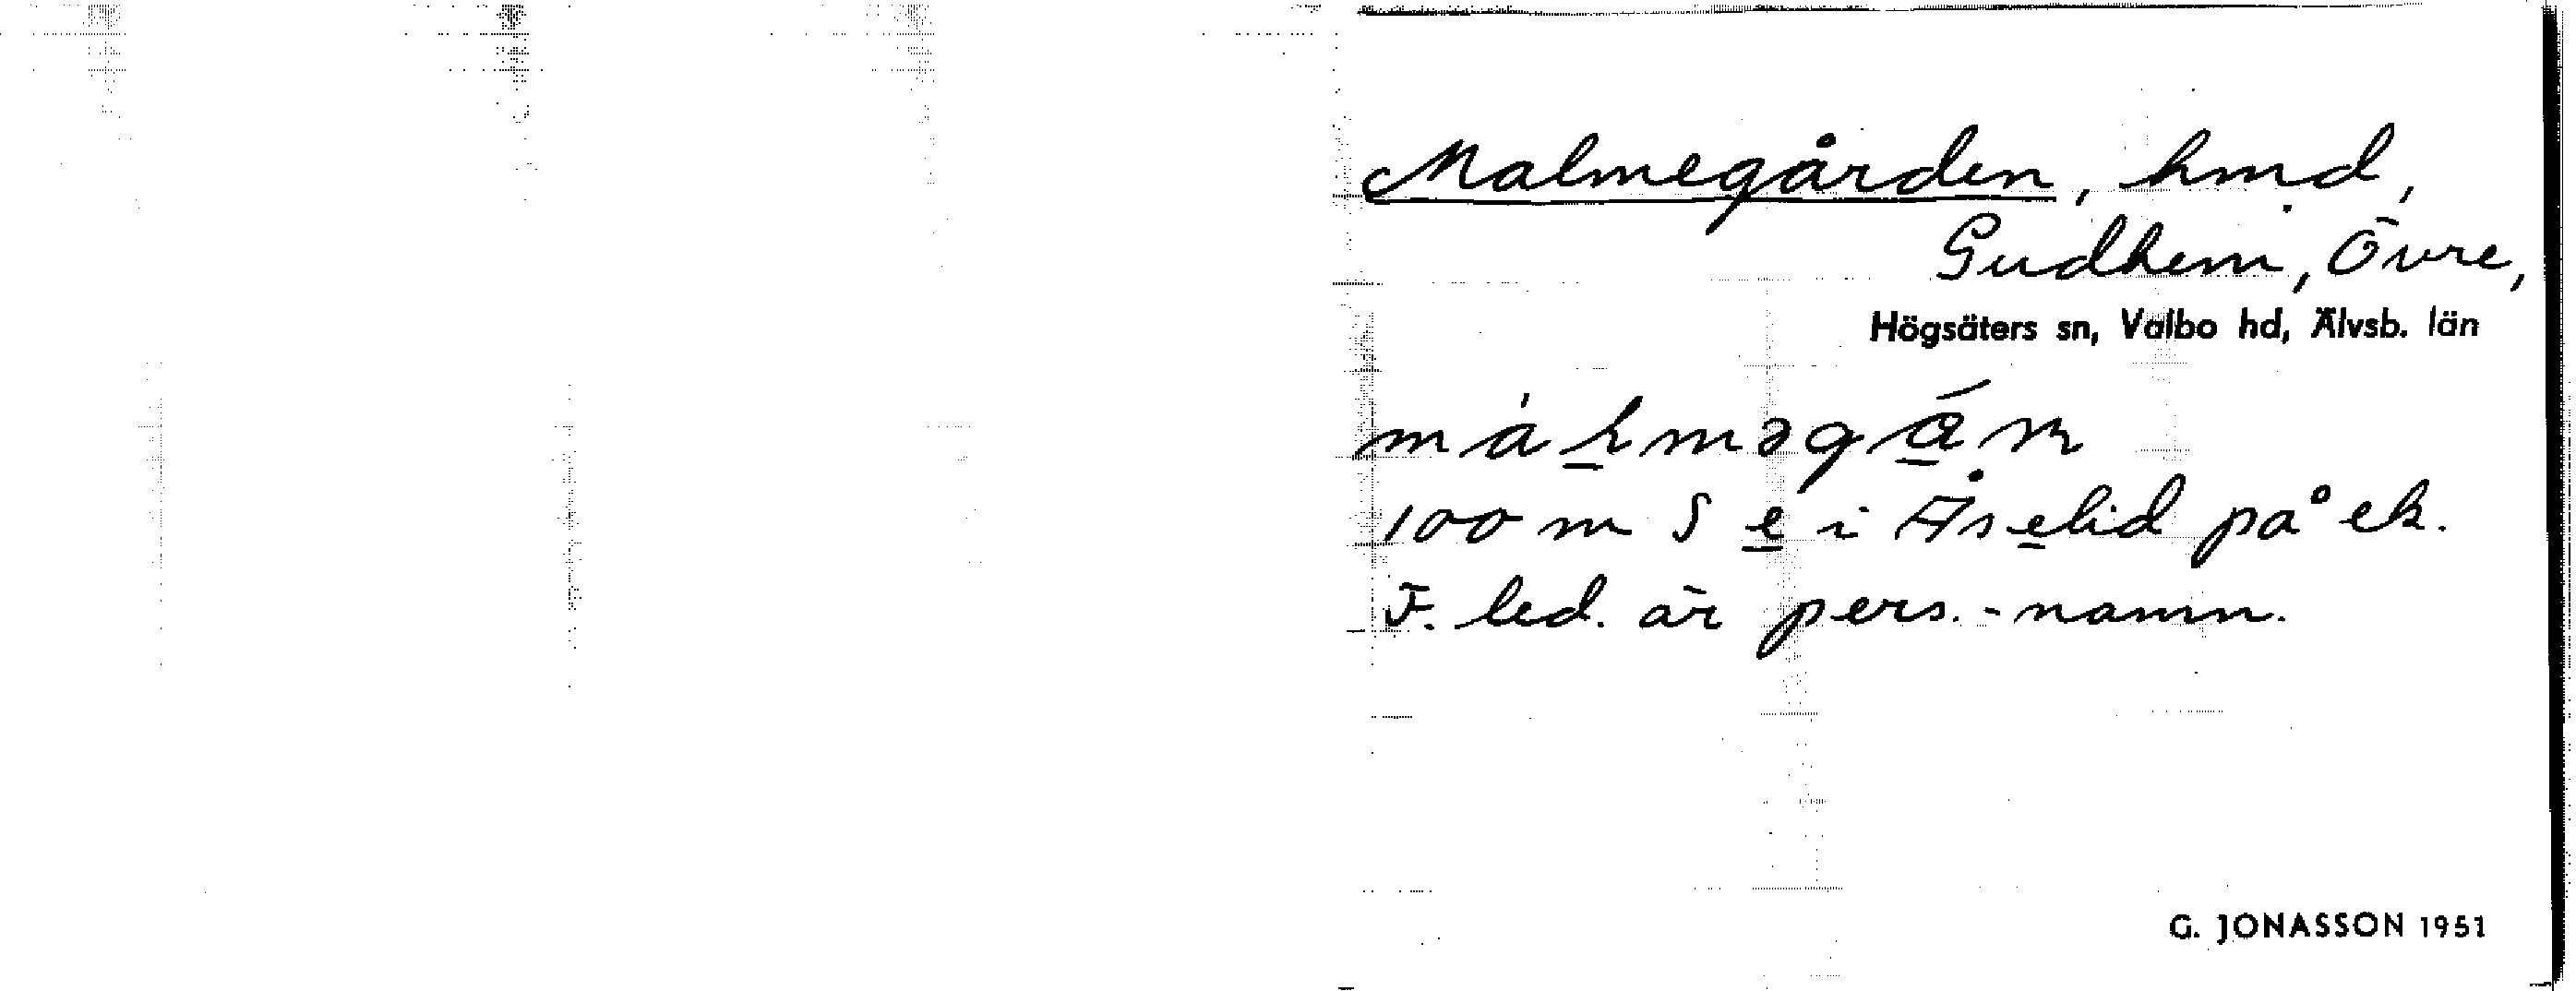 Malmegården, hmd,
Gudhem, Övre,
Högsäters sn, Valbo hd, Älvsb. län
100 m S e i Åselid på ek.
F. led. är pers.-namn.
G. JONASSON 1951